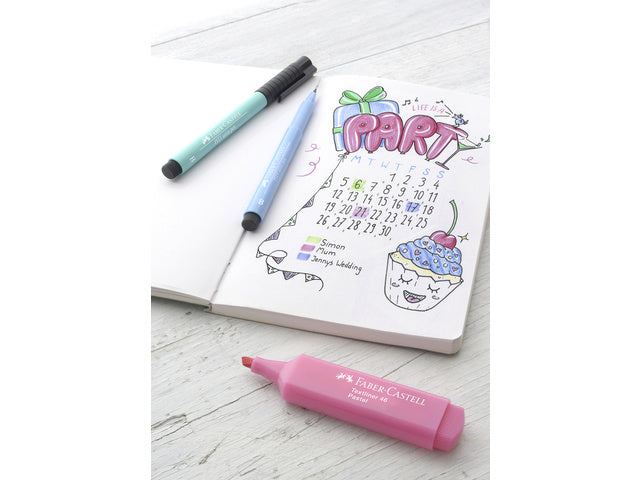 FABER-CASTELL
B
B
LIFE IS A
PARTY
M T W T F S S
1 2 3 4
5 6 7 8 9 10 11
12 13 14 15 16 17 18
19 20 21 22 23 24 25
26 27 28 29 30
Simon
Mum
Jennys Wedding
FABER-CASTELL
Textliner 46
Pastel